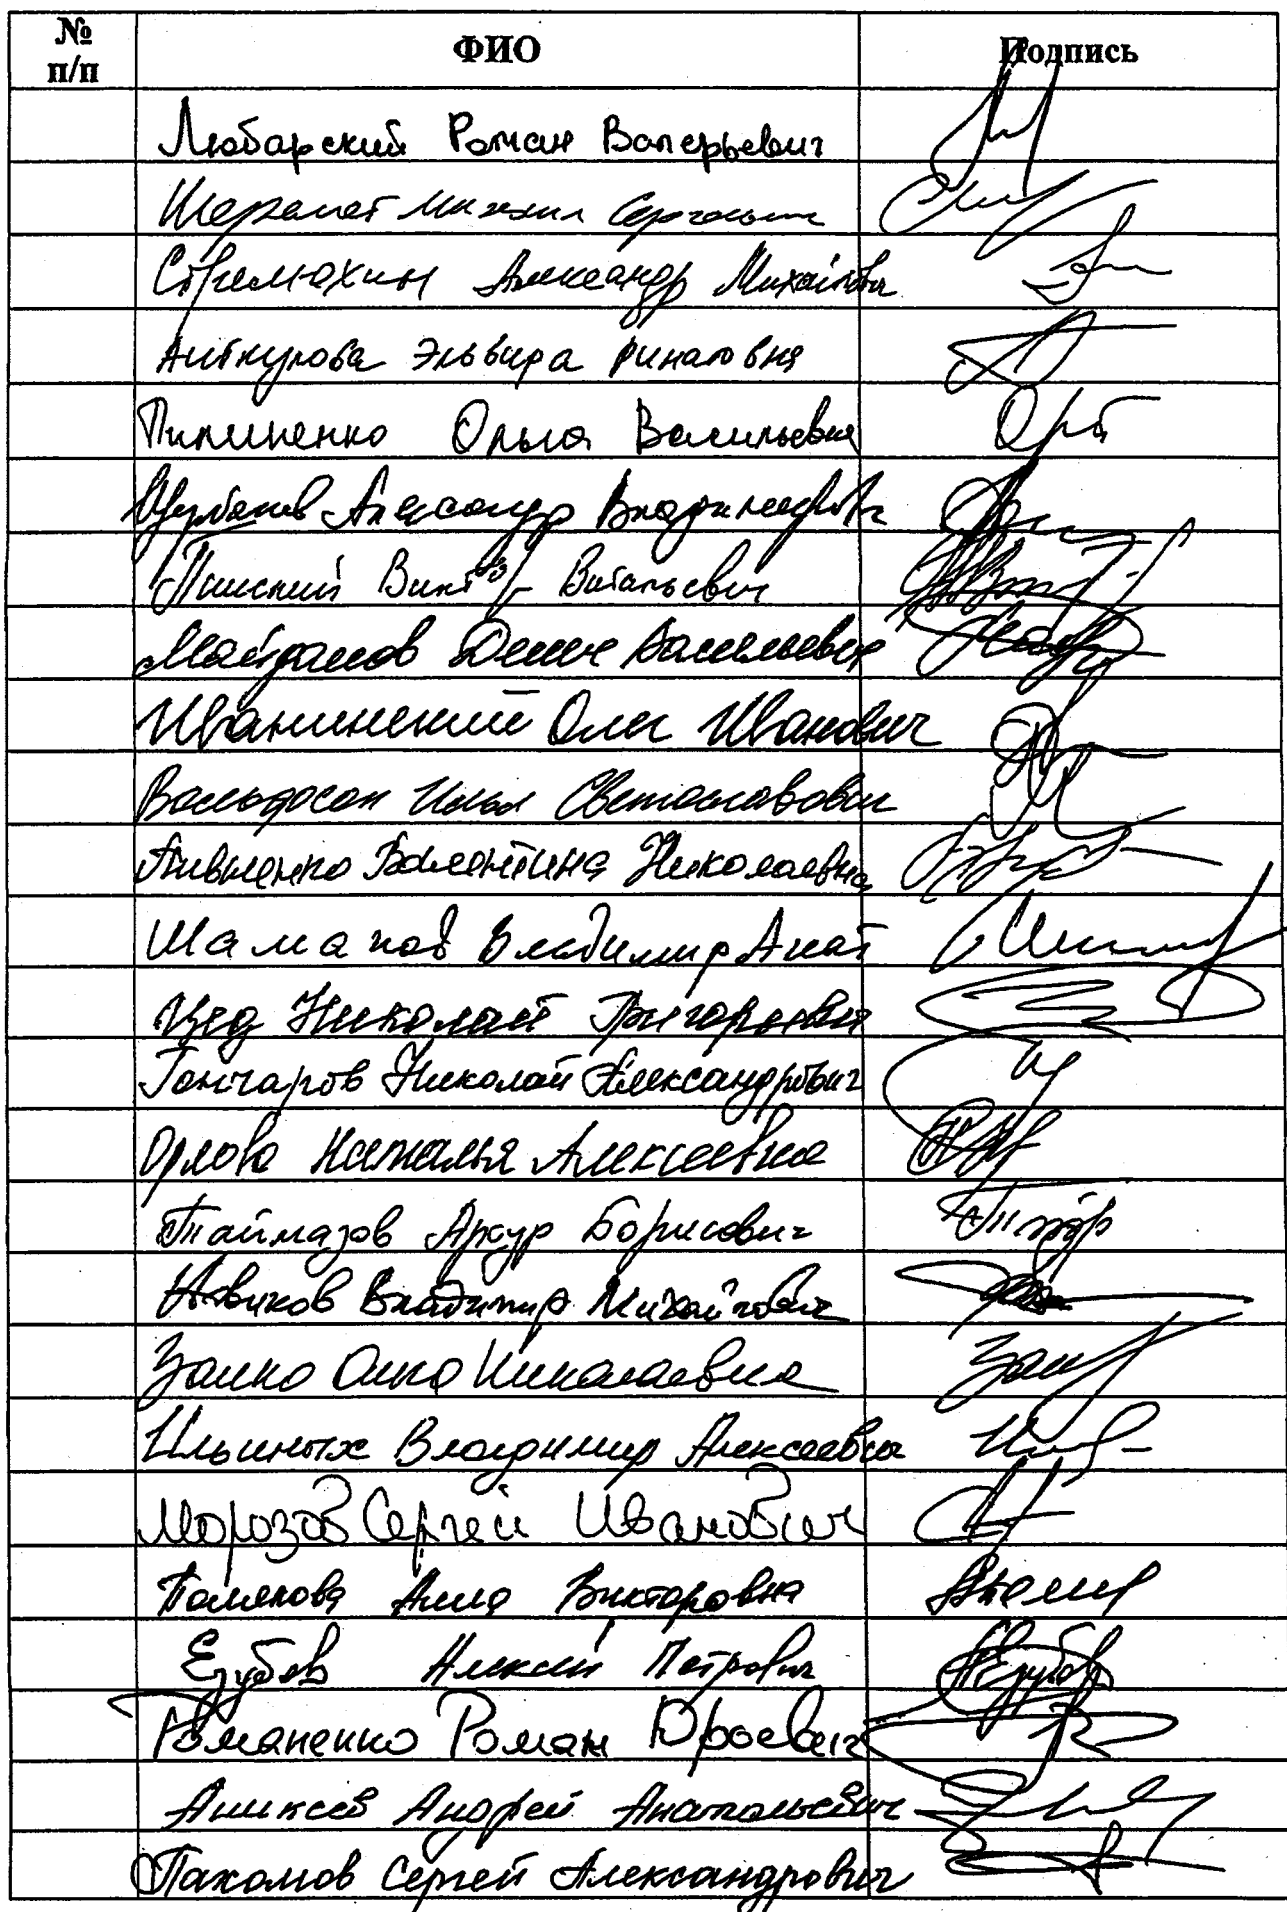 № п/п ФИО Подпись
Любарский Роман Валерьевич
Шеремет Михаил Сергеевич
Стрелюхин Александр Михайлович
Аиткулова Эльвира Ринатовна
Пилипенко Ольга Васильевна
Александр Владимирович
Пинский Виктор Витальевич
Майданов Денис Васильевич
Иванинский Олег Иванович
Вольфсон Илья Светославович
Пивненко Валентина Николаевна
Шаманов Владимир Анат
Цед Николай Григорьевич
Гончаров Николай Александрович
Орлова Наталья Алексеевна
Таймазов Артур Борисович
Новиков Владимир Михайлович
Занко Ольга Николаевна
Ильиных Владимир Алексеевич
Морозов Сергей Иванович
Полякова Алла Викторовна
Езубов Алексей Петрович
Романенко Роман Юрьевич
Аникеев Андрей Анатольевич
Пахомов Сергей Александрович